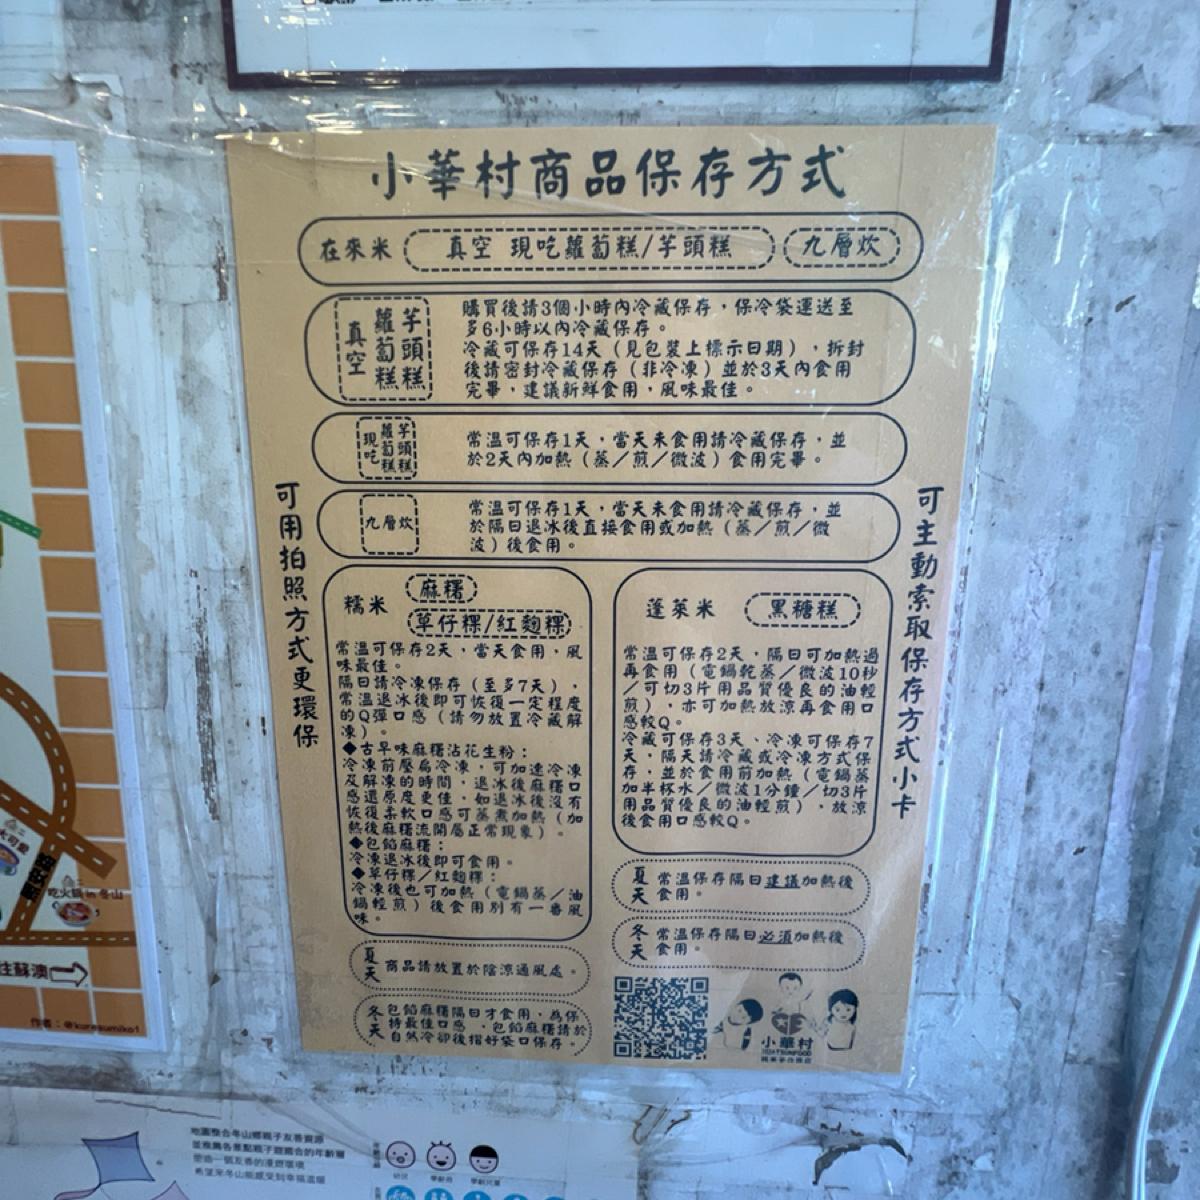 小華村商品保存方式
在來米
真空 現吃蘿蔔糕/芋頭糕
九層炊
真空
蘿蔔糕
芋頭糕
購買後請3個小時內冷藏保存，保冷袋運送至
多6小時以內冷藏保存。
冷藏可保存14天（見包裝上標示日期），拆封
後請密封冷藏保存（非冷凍）並於3天內食用
完畢，建議新鮮食用，風味最佳。
現吃
蘿蔔糕
芋頭糕
常溫可保存1天，當天未食用請冷藏保存，並
於2天內加熱（蒸／煎／微波）食用完畢。
九層炊
常溫可保存1天，當天未食用請冷藏保存，並
於隔日退冰後直接食用或加熱（蒸／煎／微
波）後食用。
可用拍照方式更環保
可主動索取保存方式小卡
糯米
麻糬
草仔粿/紅麴粿
常溫可保存2天，當天食用，風
味最佳。
隔日請冷凍保存（至多7天），
常溫退冰後即可恢復一定程度
的Q彈口感（請勿放置冷藏解
凍）。
◆古早味麻糬沾花生粉：
冷凍前壓扁冷凍，可加速冷凍
及解凍的時間，退冰後麻糬口
感還原度更佳，如退冰後沒有
恢復柔軟口感可蒸煮加熱（加
熱後麻糬流開屬正常現象）。
◆包餡麻糬：
冷凍退冰後即可食用。
◆草仔粿／紅麴粿：
冷凍後也可加熱（電鍋蒸／油
鍋輕煎）後食用別有一番風
味。
夏天
商品請放置於陰涼通風處。
冬天
包餡麻糬隔日才食用，為保
持最佳口感，包餡麻糬請於
自然冷卻後搢好袋口保存。
蓬萊米
黑糖糕
常溫可保存2天，隔日可加熱過
再食用（電鍋乾蒸／微波10秒
／可切3片用品質優良的油輕
煎），亦可加熱放涼再食用口
感較Q。
冷藏可保存3天、冷凍可保存7
天，隔天請冷藏或冷凍方式保
存，並於食用前加熱（電鍋蒸
加半杯水／微波1分鐘／切3片
用品質優良的油輕煎），放涼
後食用口感較Q。
夏天
常溫保存隔日建議加熱後
食用。
冬天
常溫保存隔日必須加熱後
食用。
小華村
吃火鍋in冬山
往蘇澳
作者：@kuresumiko1
地圖整合冬山鄉親子友善資源